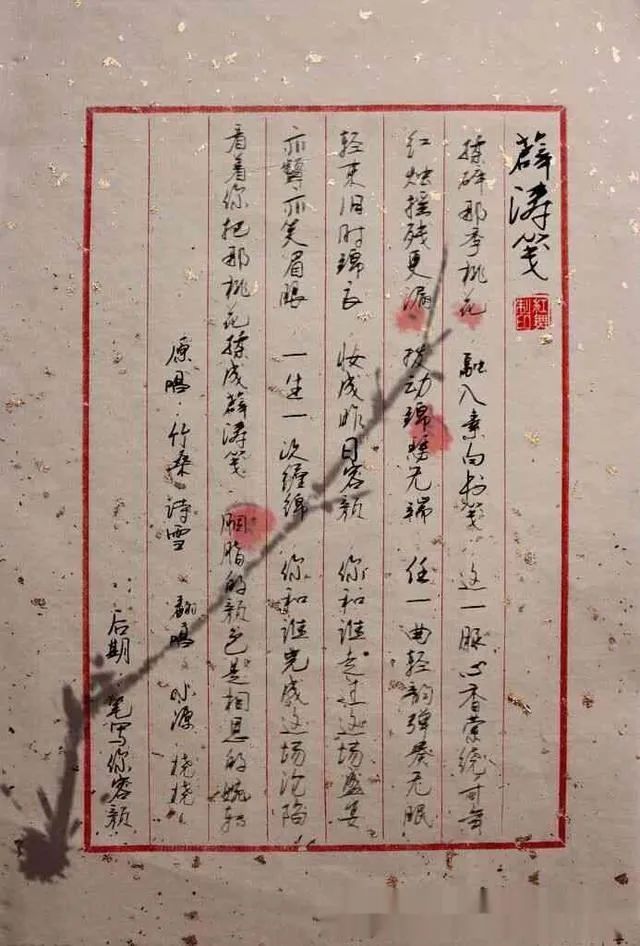 薛涛笺
揉碎那季桃花 融入素白书笺 这一脉心香萦绕可
红烛摇残更漏 拨动锦瑟无端 任一曲轻韵弹奏无眠
轻束旧时锦衣 妆成昨日容颜 你和谁走过这场盛宴
亦颦亦笑眉眼 一生一次缠绵 你和谁完成这场沦陷
看着你把那桃花揉成薛涛笺 胭脂的颜色是相思的婉转
原唱：竹桑 诗雪 翻唱 水源
后期：笔写你容颜